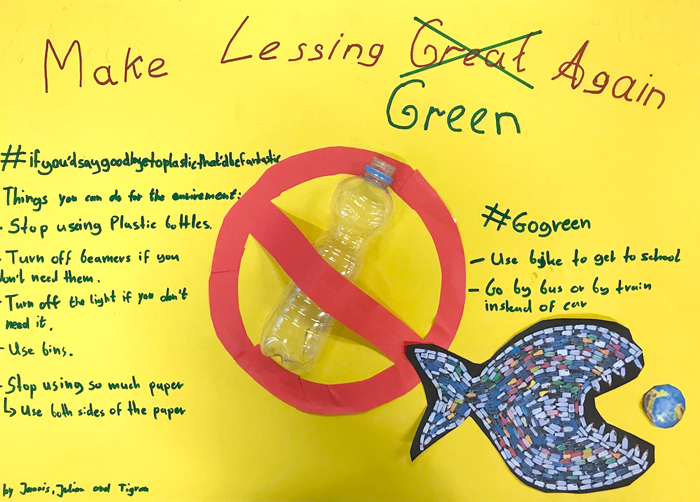 Make Lessing Great Again
Green
#ifyou'dsaygoodbyetoplasticthat'dbefantastic
Things you can do for the enviroment:
- Stop using Plastic bottles.
- Turn off beamers if you
don't need them.
- Turn off the light if you don't
need it.
- Use bins.
- Stop using so much paper
↳ Use both sides of the paper
by Jannis, Julian and Tigran
#Gogreen
- Use bike to get to school
- Go by bus or by train
instead of car